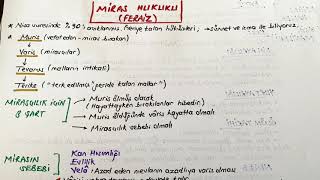 MİRAS HUKUKU
(FERAİZ)
* Nisa suresinde %90 açıklanmış. Geriye kalan hükümleri → sünnet ve icma ile biliyoruz.
* Muris (vefat eden-miras bırakan)
Varis (mirasçılar)
Tevarüs (malların intikali)
Tereke (terk edilmiş, geride kalan mallar)
MİRASÇILIK İÇİN 3 ŞART
→ Muris ölmüş olacak
(Hayattayken bırakılanlar hibedir)
→ Muris öldüğünde varis hayatta olmalı
→ Mirasçılık sebebi olmalı
MİRASIN SEBEBİ
Kan Hısımlığı
Evlilik
Velâ: Azad eden mevlanın azadlıya varis olması